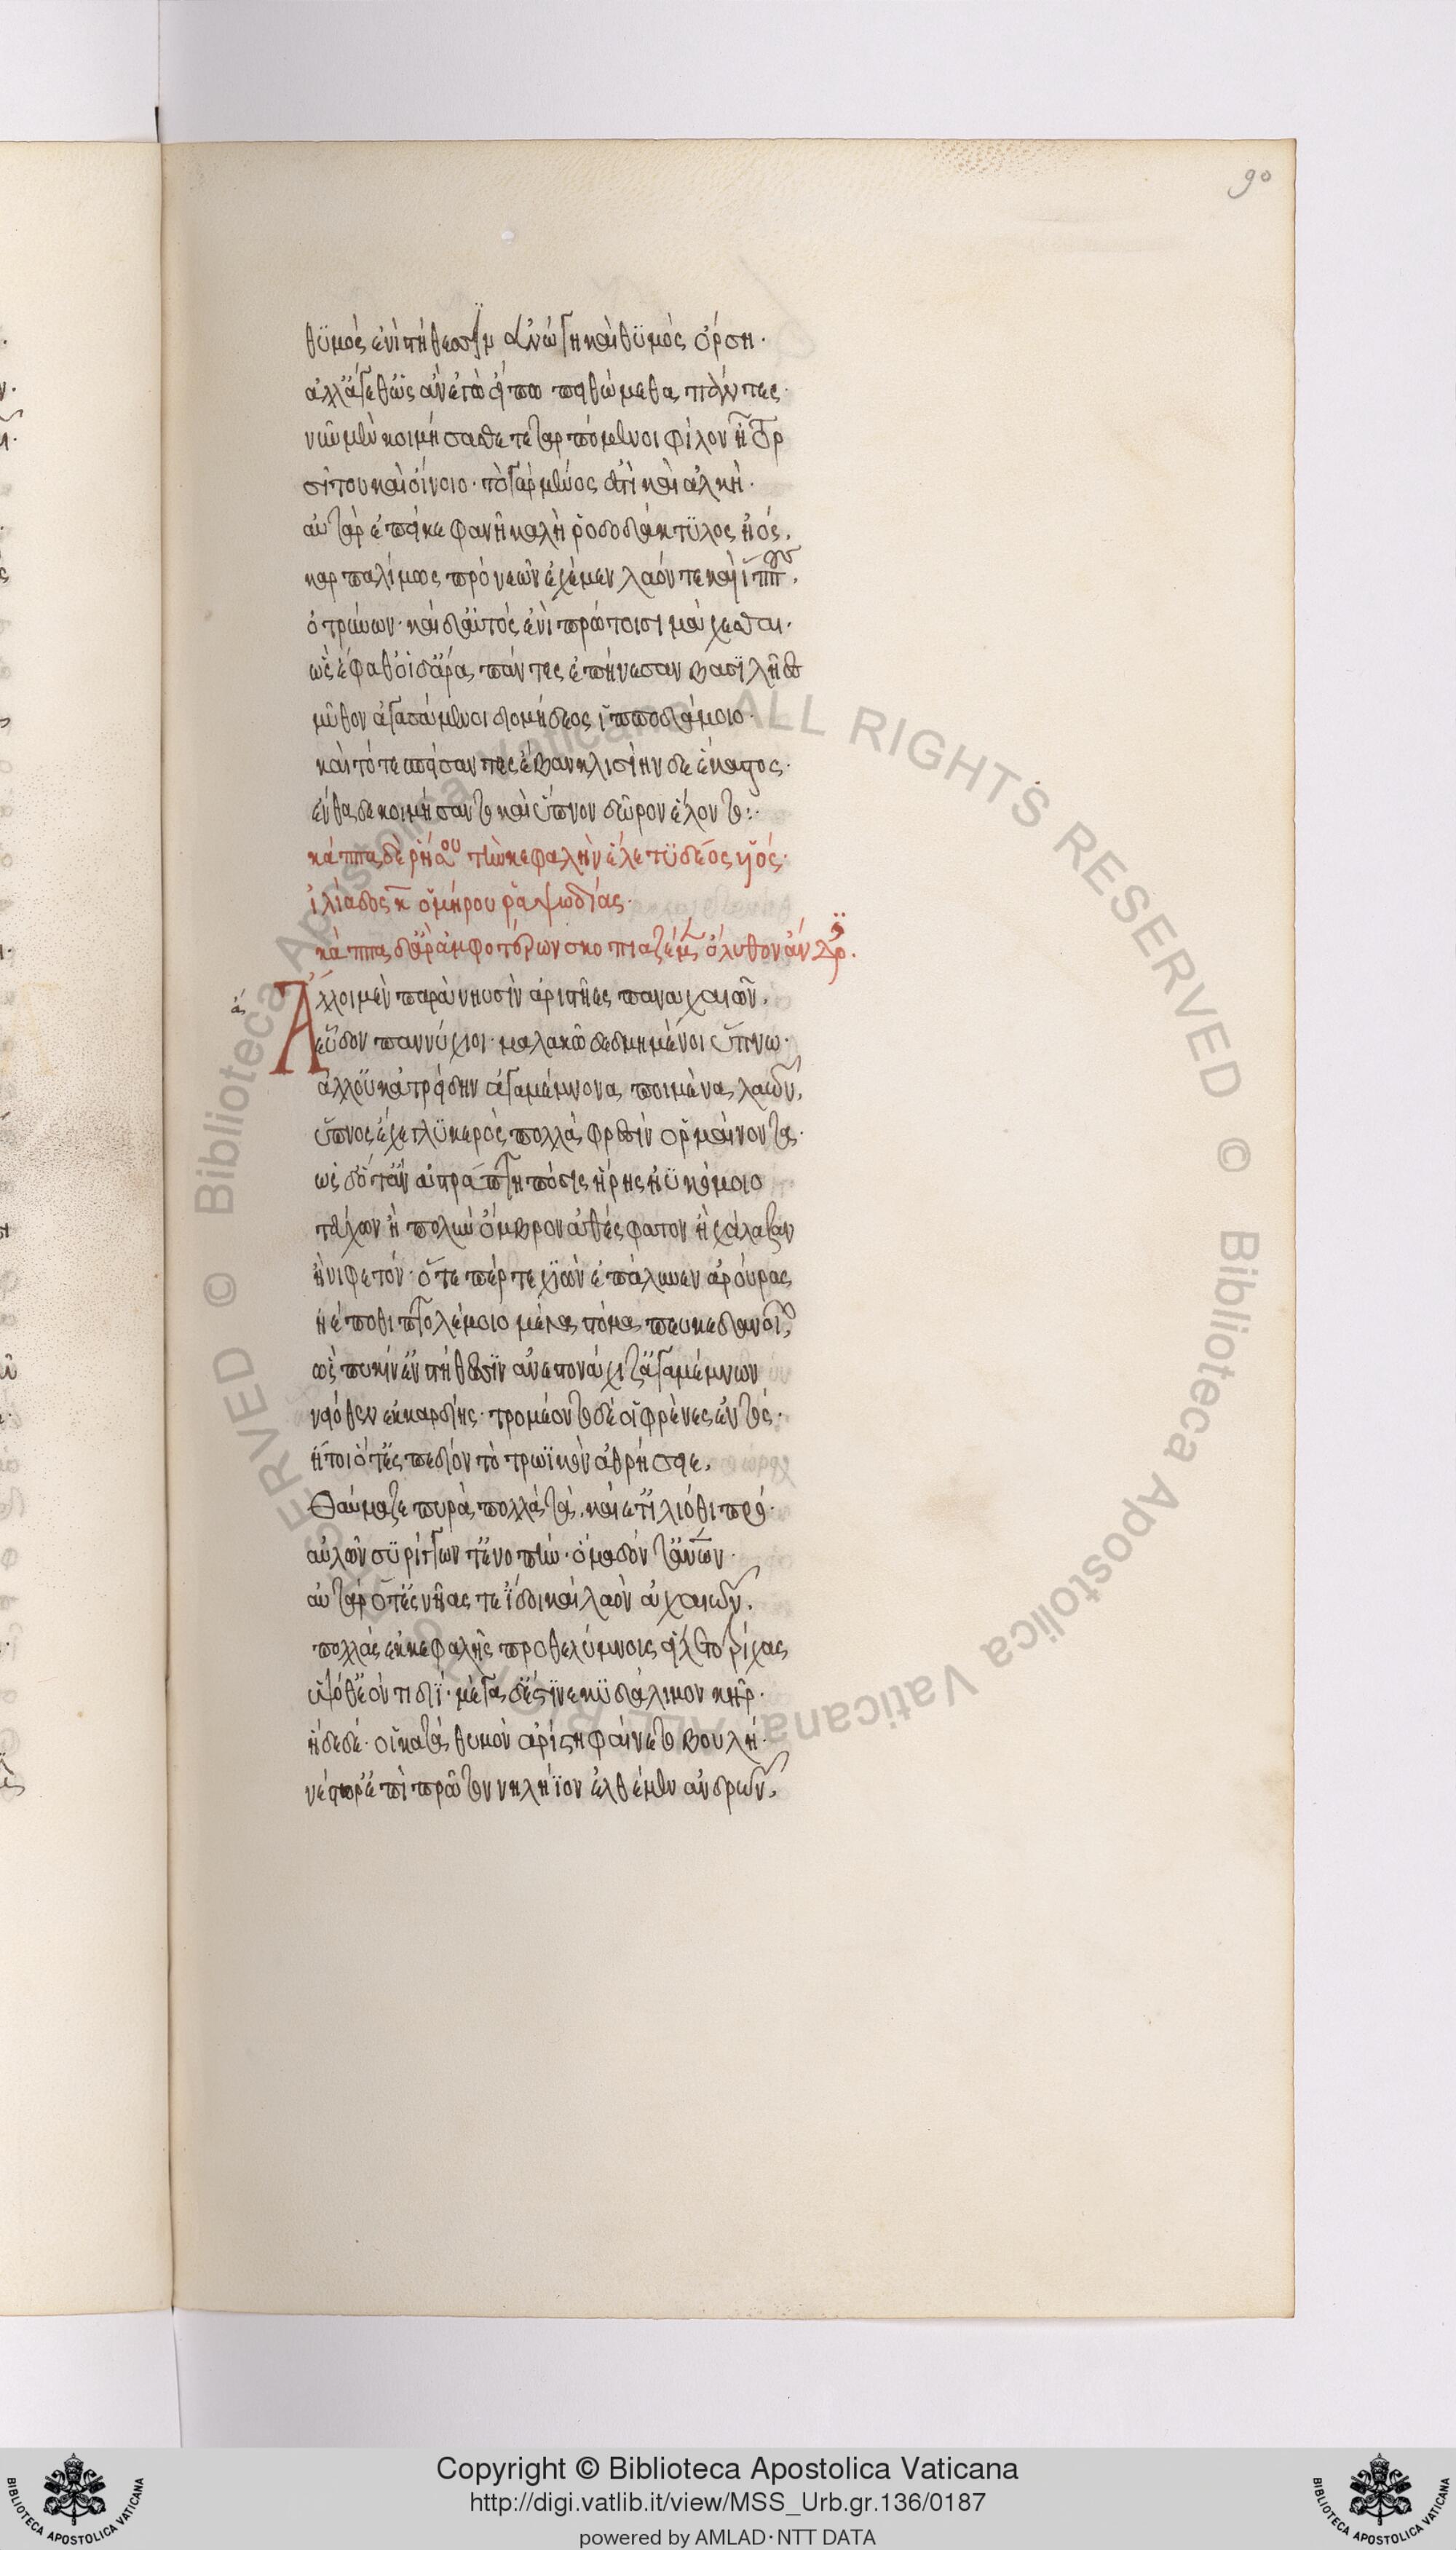 90
θϋμὸς ἐνὶ στήθεσσιν ἀνώγη καὶ θϋμὸς ὄρση·
ἀλλ' ἄγεθ' ὡς ἂν ἐγὼ εἴπω πειθώμεθα πάντες·
νῦν μὲν κοιμήσασθε τεταρπόμενοι φίλον ἦτορ
σίτου καὶ οἴνοιο· τὸ γὰρ μένος ἐστὶ καὶ ἀλκὴ·
αὐτὰρ ἐπεί κε φανῆ καλὴ ῥοδοδάκτϋλος ἠώς,
καρπαλίμως πρὸ νεῶν ἐχέμεν λαόν τε καὶ ἵππους,
ὀτρύνων· καὶ δ' αὐτὸς ἐνὶ πρώτοισι μάχεσθαι·
ὣς ἔφαθ' οἱ δ' ἄρα πάντες ἐπήνεσαν βασϊλῆες
μῦθον ἀγασσάμενοι διομήδεος ἱπποδάμοιο·
καὶ τότε σπείσαντες ἔβαν κλισίην δὲ ἕκαστος·
ἔνθα δὲ κοιμήσαντο καὶ ὕπνου δῶρον ἕλοντο:·
κάππα δὲ ῥήσου τὴν κεφαλὴν ἕλε τϋδέος υἱός·
ἰλιάδος κ ὁμήρου ῥαψωδίας·
κάππα δ' ἄρ' ἀμφοτέρων σκοπιαζέμεν ἤλυθον ἄνδρες.
ἄλλοι μὲν παρὰ νηυσὶν ἀριστῆες παναχαιῶν,
εὗδον παννύχιοι· μαλακῶ δεδμημένοι ὕπνω·
ἀλλ' οὐκ ἀτρείδην ἀγαμέμνονα ποιμένα λαῶν,
ὕπνος ἔχε γλϋκερὸς πολλὰ φρεσὶν ὁρμαίνοντα·
ὡς δ' ὅτ' ἂν ἀστράπτη πόσις ἥρης ἠϋκόμοιο
τεύχων ἢ πολὺν ὄμβρον ἀθέσφατον ἠὲ χάλαζαν
ἢ νιφετόν· ὅτε πέρ τε χϊὼν ἐπάλυνεν ἀρούρας
ἠέ ποθι πτολέμοιο μέγα στόμα πευκεδανοῖο,
ὣς πυκίν' ἐν στήθεσσϊν ἀνεστονάχιζ' ἀγαμέμνων
νειόθεν ἐκ καρδίης· τρομέοντο δέ οἱ φρένες ἐντός·
ἤτοι ὅτ' ἐς πεδίον τὸ τρωϊκὸν ἀθρήσειε,
θαύμαζε πυρὰ πολλὰ τὰ καίετ' ἰλιόθι πρό·
αὐλῶν σϋρίγγων τ' ἐνοπὴν· ὅμαδόν τ' ἀνθρώπων·
αὐτὰρ ὅτ' ἐς νῆας τε ἴδοι καὶ λαὸν ἀχαιῶν,
πολλὰς ἐκ κεφαλῆς προθελύμνοις εἵλκετο τρίχας
ὑψόθ' ἐόντι διΐ· μέγα δ' ἔστϊνε κϋδάλιμον κῆρ·
ἥδε δέ· οἱ κατὰ θυμὸν ἀρίστη φαίνετο βουλή·
νέστορ' ἔπι πρῶτον νηλήϊον ἐλθέμεν ἀνδρῶν,
Copyright © Biblioteca Apostolica Vaticana
http://digi.vatlib.it/view/MSS_Urb.gr.136/0187
powered by AMLAD·NTT DATA